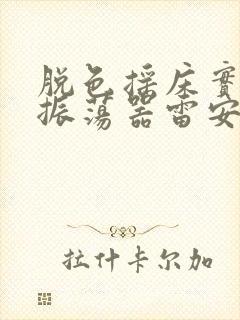 脱色摇床實
振荡器雷安
拉什卡尔加